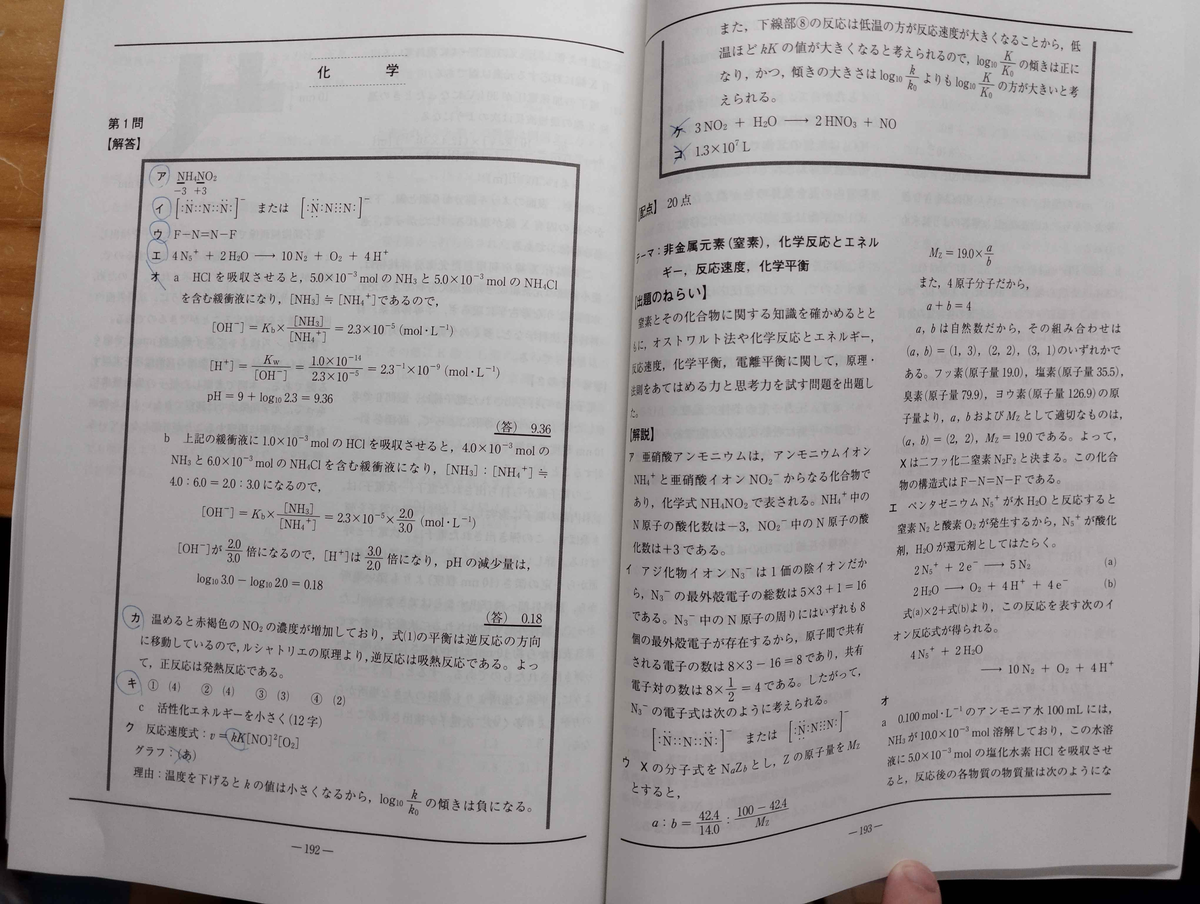 化　学
第1問
【解答】
ア NH₄NO₂
−3 +3
イ [:N::N::N:]⁻ または [:N:N⋮⋮N:]⁻
ウ F−N=N−F
エ 4N₅⁺ + 2H₂O ⟶ 10N₂ + O₂ + 4H⁺
オ a HClを吸収させると，5.0×10⁻³ molのNH₃と5.0×10⁻³ molのNH₄Cl
を含む緩衝液になり，[NH₃]≒[NH₄⁺]であるので，
[OH⁻] = K_b × [NH₃]/[NH₄⁺] = 2.3×10⁻⁵ (mol·L⁻¹)
[H⁺] = K_w/[OH⁻] = 1.0×10⁻¹⁴/2.3×10⁻⁵ = 2.3⁻¹×10⁻⁹ (mol·L⁻¹)
pH = 9 + log₁₀ 2.3 = 9.36
(答) 9.36
b 上記の緩衝液に1.0×10⁻³ molのHClを吸収させると，4.0×10⁻³ molの
NH₃と6.0×10⁻³ molのNH₄Clを含む緩衝液になり，[NH₃]：[NH₄⁺]≒
4.0：6.0＝2.0：3.0になるので，
[OH⁻] = K_b × [NH₃]/[NH₄⁺] = 2.3×10⁻⁵ × 2.0/3.0 (mol·L⁻¹)
[OH⁻]が 2.0/3.0 倍になるので，[H⁺]は 3.0/2.0 倍になり，pHの減少量は，
log₁₀ 3.0 − log₁₀ 2.0 = 0.18
(答) 0.18
カ 温めると赤褐色のNO₂の濃度が増加しており，式(1)の平衡は逆反応の方向
に移動しているので，ルシャトリエの原理より，逆反応は吸熱反応である。よっ
て，正反応は発熱反応である。
キ ① (4) ② (4) ③ (3) ④ (2)
c 活性化エネルギーを小さく(12字)
ク 反応速度式：v = kK[NO]²[O₂]
グラフ：(あ)
理由：温度を下げるとkの値は小さくなるから，log₁₀ k/k₀ の傾きは負になる。
—192—
また，下線部⑧の反応は低温の方が反応速度が大きくなることから，低
温ほどkKの値が大きくなると考えられるので，log₁₀ K/K₀ の傾きは正に
なり，かつ，傾きの大きさはlog₁₀ k/k₀ よりもlog₁₀ K/K₀ の方が大きいと考
えられる。
ケ 3NO₂ + H₂O ⟶ 2HNO₃ + NO
コ 1.3×10⁷ L
【配点】 20点
テーマ：非金属元素(窒素)，化学反応とエネル
ギー，反応速度，化学平衡
【出題のねらい】
窒素とその化合物に関する知識を確かめるとと
もに，オストワルト法や化学反応とエネルギー，
反応速度，化学平衡，電離平衡に関して，原理・
法則をあてはめる力と思考力を試す問題を出題し
た。
【解説】
ア 亜硝酸アンモニウムは，アンモニウムイオン
NH₄⁺と亜硝酸イオンNO₂⁻からなる化合物で
あり，化学式NH₄NO₂で表される。NH₄⁺中の
N原子の酸化数は−3，NO₂⁻中のN原子の酸
化数は+3である。
イ アジ化物イオンN₃⁻は1価の陰イオンだか
ら，N₃⁻の最外殻電子の総数は5×3+1=16
である。N₃⁻中のN原子の周りにはいずれも8
個の最外殻電子が存在するから，原子間で共有
される電子の数は8×3−16=8であり，共有
電子対の数は8×1/2=4である。したがって，
N₃⁻の電子式は次のように考えられる。
[:N::N::N:]⁻ または [:N:N⋮⋮N:]⁻
ウ Xの分子式をNₐZ_bとし，Zの原子量をM_Z
とすると，
a：b = 42.4/14.0 : (100−42.4)/M_Z
M_Z = 19.0 × a/b
また，4原子分子だから，
a + b = 4
a, bは自然数だから，その組み合わせは
(a, b) = (1, 3), (2, 2), (3, 1)のいずれかで
ある。フッ素(原子量19.0)，塩素(原子量35.5)，
臭素(原子量79.9)，ヨウ素(原子量126.9)の原
子量より，a, bおよびM_Zとして適切なものは，
(a, b) = (2, 2), M_Z = 19.0である。よって，
Xは二フッ化二窒素N₂F₂と決まる。この化合
物の構造式はF−N=N−Fである。
エ ペンタゼニウムN₅⁺が水H₂Oと反応すると
窒素N₂と酸素O₂が発生するから，N₅⁺が酸化
剤，H₂Oが還元剤としてはたらく。
2N₅⁺ + 2e⁻ ⟶ 5N₂ (a)
2H₂O ⟶ O₂ + 4H⁺ + 4e⁻ (b)
式(a)×2+式(b)より，この反応を表す次のイ
オン反応式が得られる。
4N₅⁺ + 2H₂O
⟶ 10N₂ + O₂ + 4H⁺
オ
a 0.100 mol·L⁻¹のアンモニア水100 mLには，
NH₃が10.0×10⁻³ mol溶解しており，この水溶
液に5.0×10⁻³ molの塩化水素HClを吸収させ
ると，反応後の各物質の物質量は次のようにな
—193—